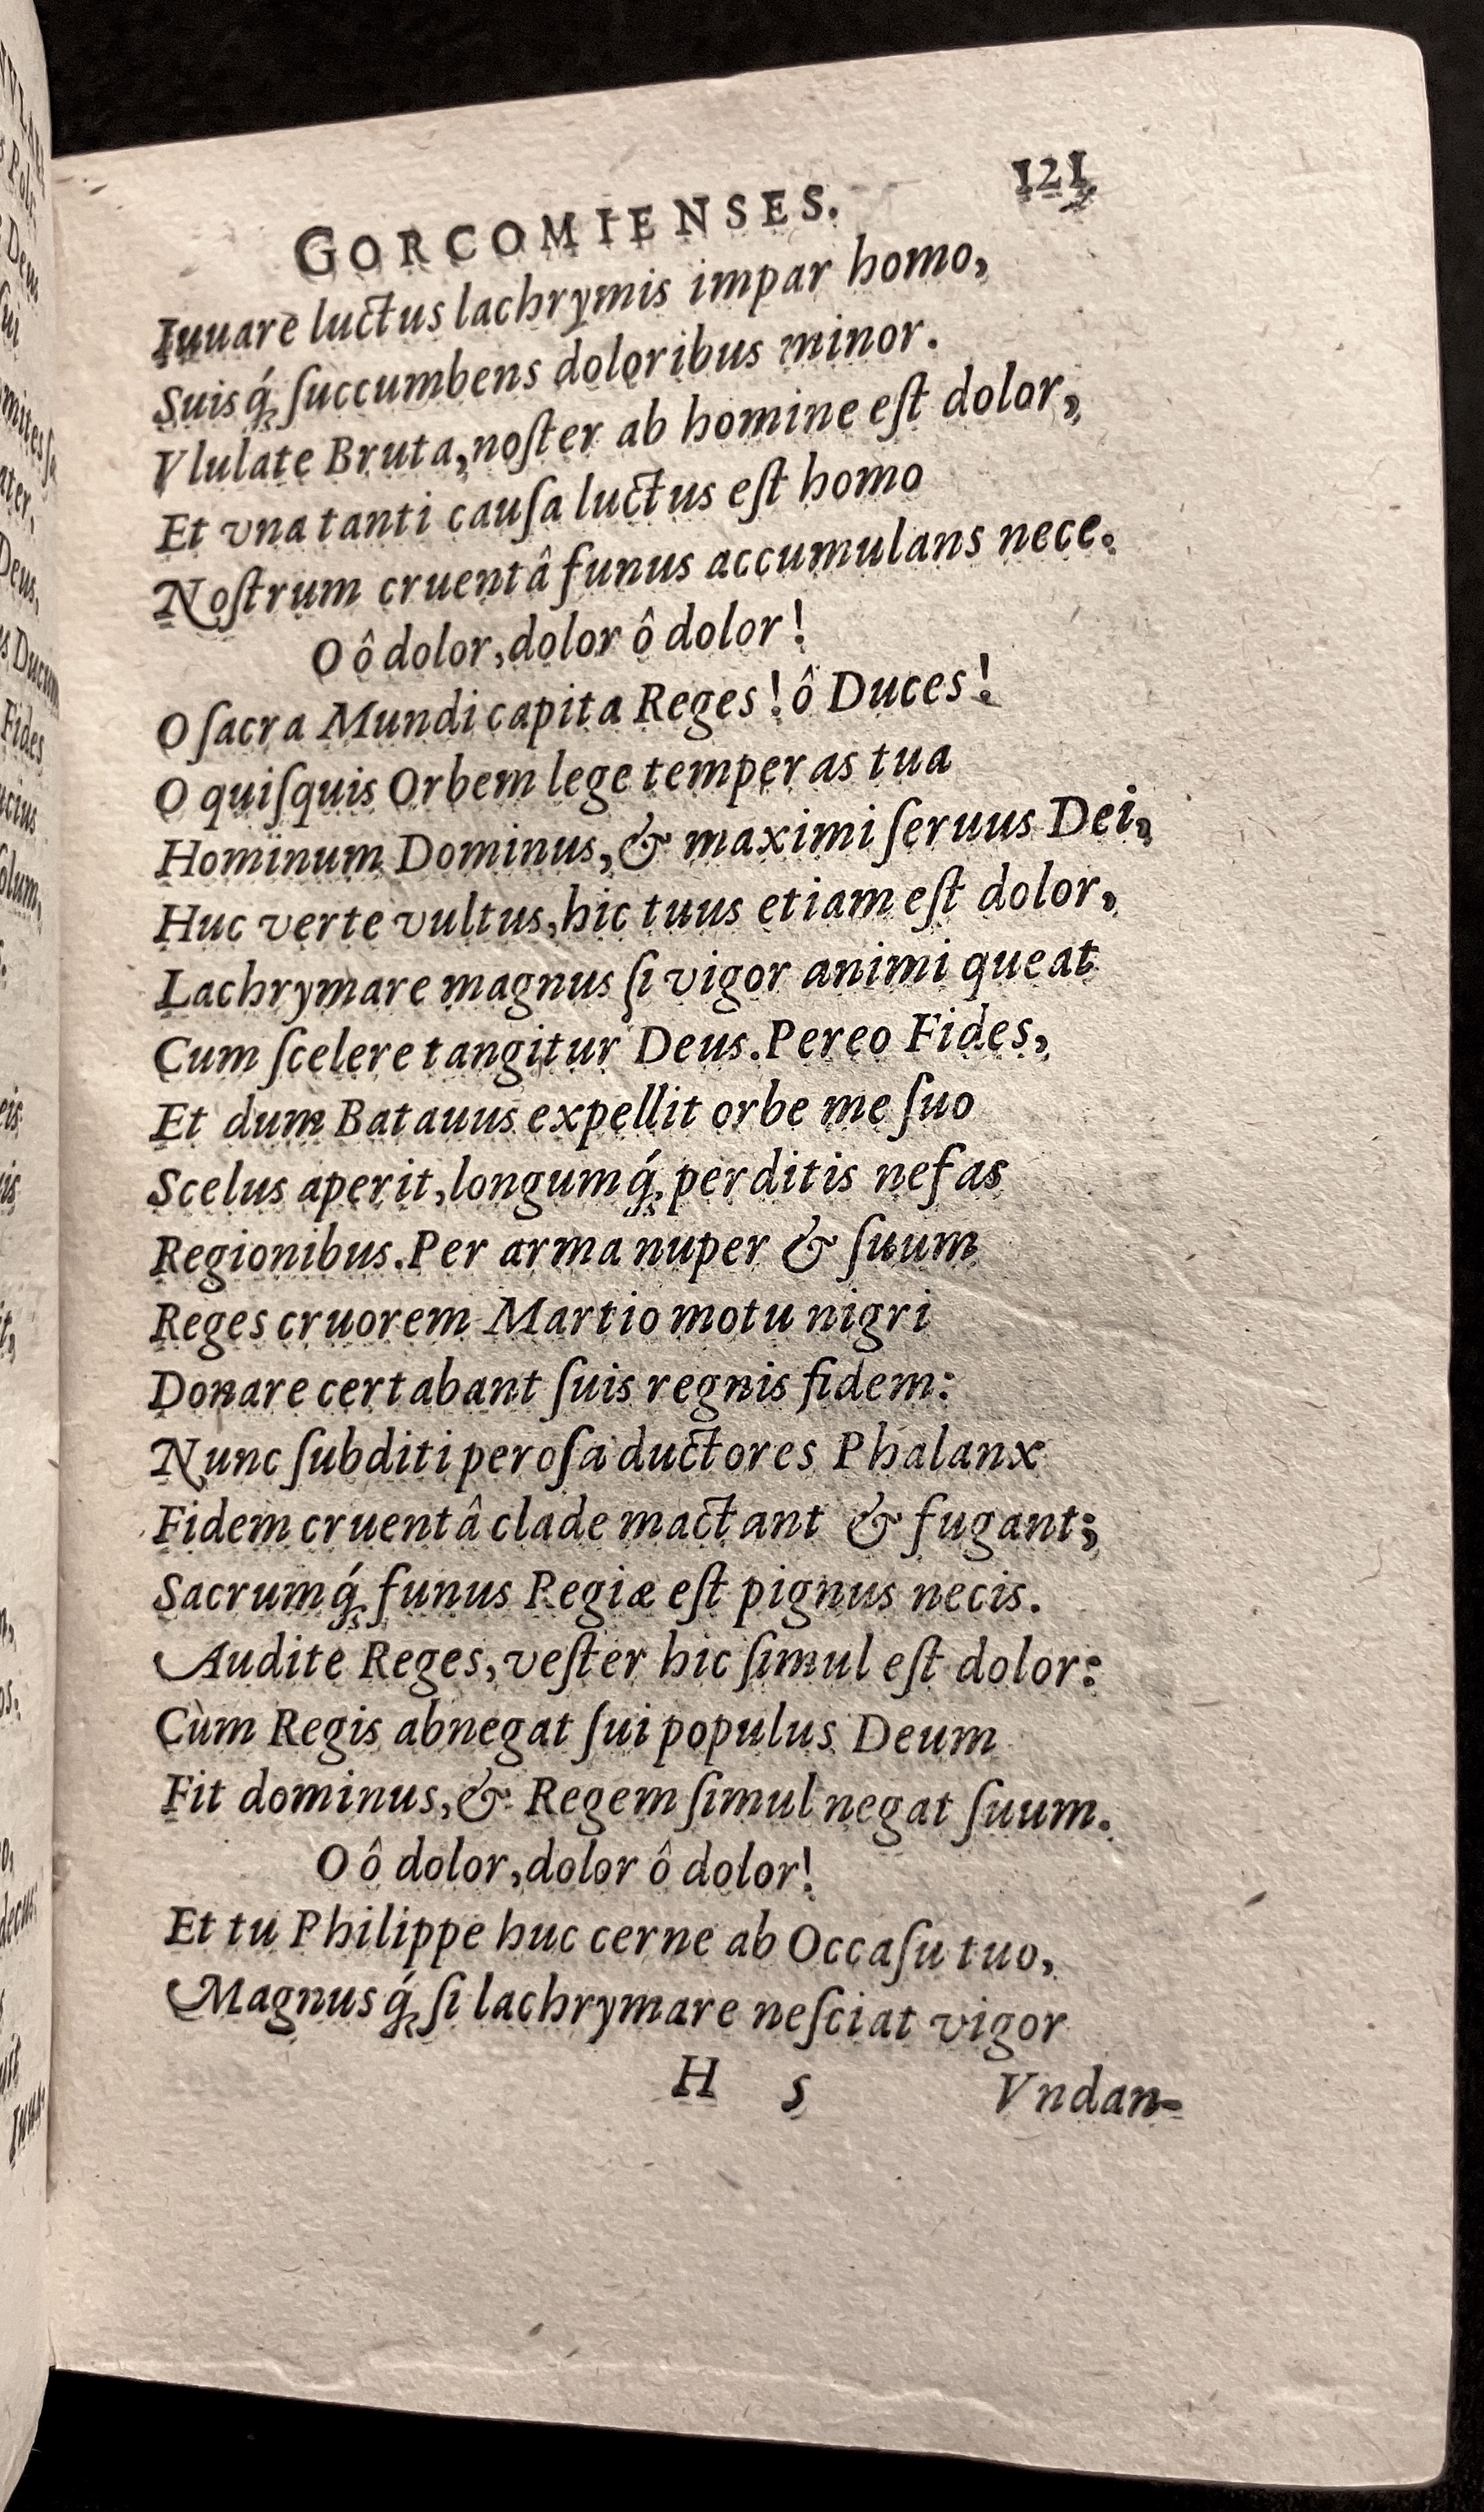 GORCOMIENSES. 121
Iuuare luctus lachrymis impar homo,
Suisq́; ſuccumbens doloribus minor.
Vlulate Bruta, noſter ab homine eſt dolor,
Et vna tanti cauſa luctus eſt homo
Noſtrum cruentâ funus accumulans nece.
O ô dolor, dolor ô dolor!
O ſacra Mundi capita Reges! ô Duces!
O quiſquis Orbem lege temperas tua
Hominum Dominus, & maximi ſeruus Dei,
Huc verte vultus, hic tuus etiam eſt dolor,
Lachrymare magnus ſi vigor animi queat
Cum ſcelere tangitur Deus. Pereo Fides,
Et dum Batauus expellit orbe me ſuo
Scelus aperit, longumq́; perditis nefas
Regionibus. Per arma nuper & ſuum
Reges cruorem Martio motu nigri
Donare certabant ſuis regnis fidem:
Nunc ſubditi peroſa ductores Phalanx
Fidem cruentâ clade mactant & fugant;
Sacrumq́; funus Regiæ eſt pignus necis.
Audite Reges, veſter hic ſimul eſt dolor:
Cùm Regis abnegat ſui populus Deum
Fit dominus, & Regem ſimul negat ſuum.
O ô dolor, dolor ô dolor!
Et tu Philippe huc cerne ab Occaſu tuo,
Magnusq́; ſi lachrymare neſciat vigor
H 5 Vndan-